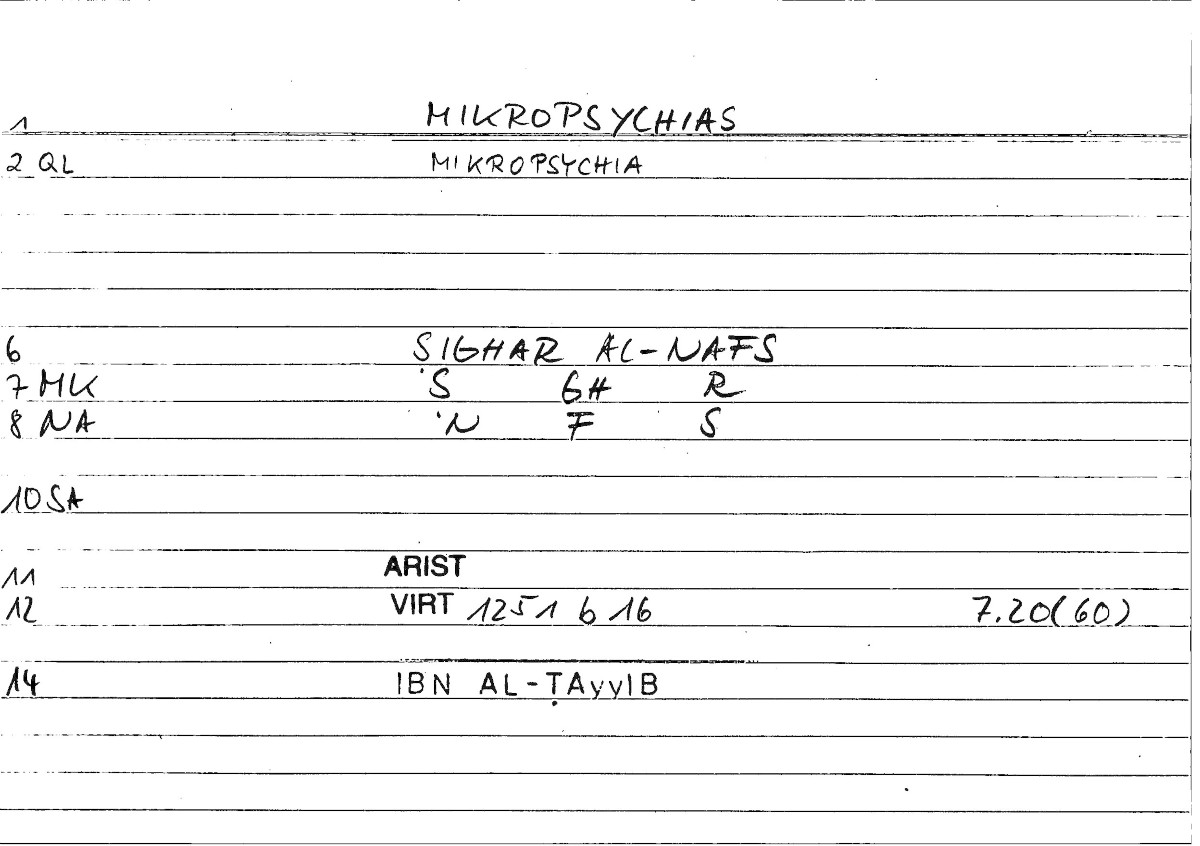 1 MIKROPSYCHIAS
2 QL MIKROPSYCHIA
6 SIGHAR AL-NAFS
7 MK 'S GH R
8 NA 'N F S
10 SA
11 ARIST
12 VIRT 1251 b 16 7.20(60)
14 IBN AL-ṬAyyIB